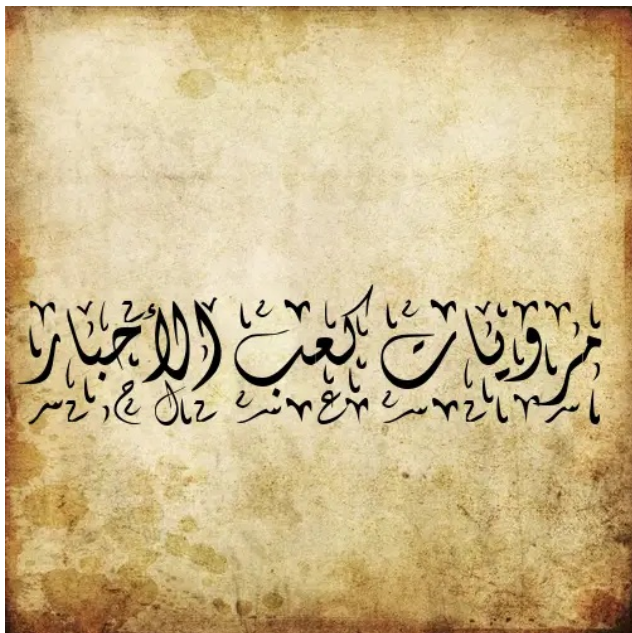 مرويات كعب الأحبار